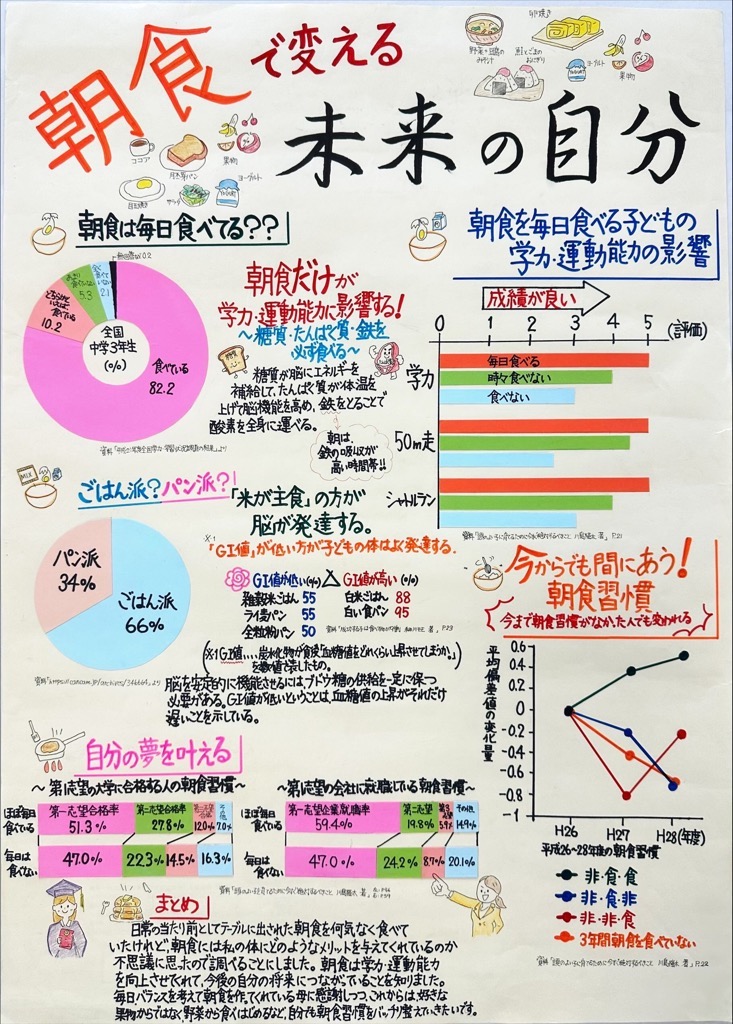 朝食で変える
未来の自分
卵焼き
野菜と豆腐の
みそ汁
鮭とごまの
おにぎり
ヨーグルト
果物
ココア
果物
目玉焼き
サラダ
ヨーグルト
朝食は毎日食べてる??
無回答など0.2
全く食べていない
2.1
あまり食べていない
5.3
どちらかといえば食べている
10.2
全国
中学3年生
(%)
食べている
82.2
朝食だけが
学力・運動能力に影響する!
〜糖質・たんぱく質・鉄を
必ず食べる〜
糖質が脳にエネルギーを
補給して、たんぱく質が体温を
上げて脳機能を高め、鉄をとることで
酸素を全身に運べる。
朝は、
鉄の吸収力が
高い時間帯!!
朝食を毎日食べる子どもの
学力・運動能力の影響
成績が良い
0 1 2 3 4 5 (評価)
学力
毎日食べる
時々食べない
食べない
50m走
シャトルラン
ごはん派?パン派?
パン派
34%
ごはん派
66%
「米が主食」の方が
脳が発達する。
※1
「GI値」が低い方が子どもの体はよく発達する.
GI値が低い(%) GI値が高い (%)
雑穀米ごはん 55 白米ごはん 88
ライ麦パン 55 白い食パン 95
全粒粉パン 50
(※1 GI値....炭水化物が食後「血糖値をどれくらい上昇させてしまうか。」
を数値で表したもの。)
脳を安定的に機能させるには、ブドウ糖の供給を一定に保つ
必要がある。GI値が低いということは、血糖値の上昇がそれだけ
遅いことを示している。
今からでも間にあう!
朝食習慣
今まで朝食習慣がなかった人でも変われる
平均偏差値の変化量
0.6
0.4
0.2
0
-0.2
-0.4
-0.6
-0.8
-1
H26 H27 H28(年度)
平成26〜28年度の朝食習慣
非・食・食
非・非・食
非・非・食
3年間朝食を食べていない
自分の夢を叶える
〜第1志望の大学に合格する人の朝食習慣〜
ほぼ毎日
食べている
第一志望合格率
51.3%
第2志望合格率
27.8%
12.0%
その他
7.0%
毎日は
食べない
47.0%
22.3%
14.5%
16.3%
〜第1志望の会社に就職している朝食習慣〜
ほぼ毎日
食べている
第一志望企業就職率
59.4%
第二志望
19.8%
5.9%
その他
14.9%
毎日は
食べない
47.0%
24.2%
8.7%
20.1%
まとめ
日常の当たり前としてテーブルに出された朝食を何気なく食べて
いたけれど、朝食には私の体にどのようなメリットを与えてくれているのか
不思議に思ったので調べることにしました。朝食は学力・運動能力
を向上させてくれて、今後の自分の将来につながっていることを知りました。
毎日バランスを考えて朝食を作ってくれている母に感謝しつつ、これからは、好きな
果物からではなく野菜から食べはじめるなど、自分でも朝食習慣をバッチリ整えていきたいです。